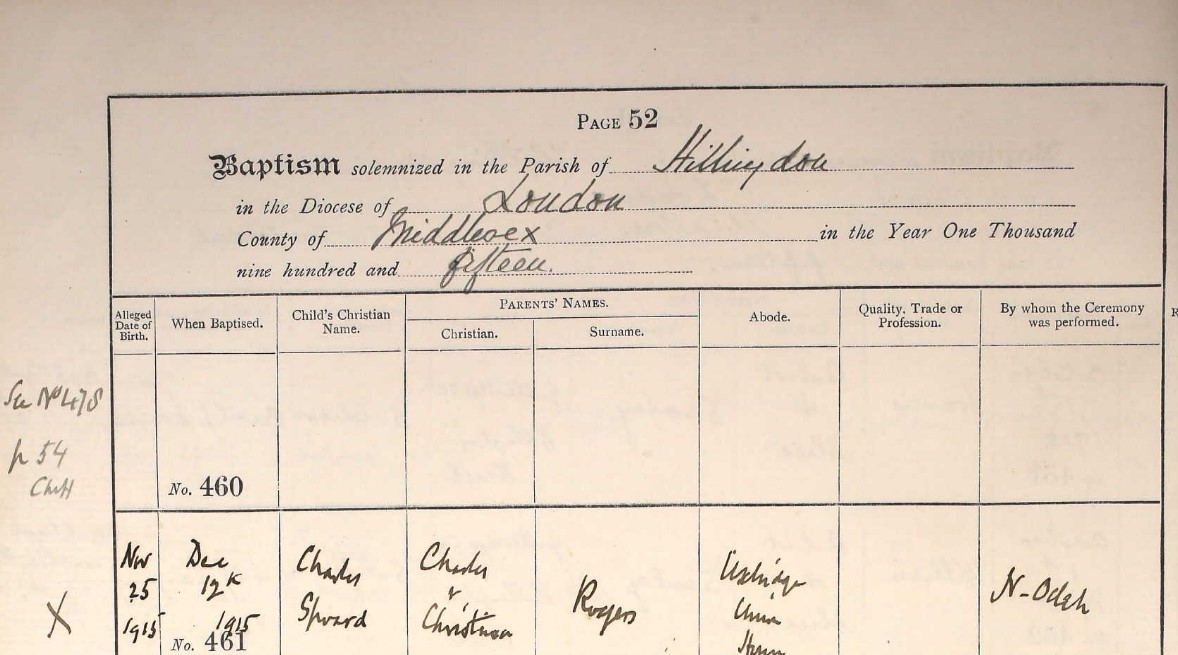 PAGE 52
Baptism solemnized in the Parish of Hillingdon
in the Diocese of London
County of Middlesex in the Year One Thousand
nine hundred and fifteen.
Alleged Date of Birth.
When Baptised.
Child's Christian Name.
PARENTS' NAMES.
Christian.
Surname.
Abode.
Quality, Trade or Profession.
By whom the Ceremony was performed.
R
See No 478
p 54
No. 460
X
Nov
25
1915
Dec
12
1915
No. 461
Charles
Charles
&
Christina
Rogers
Uxbridge
Union